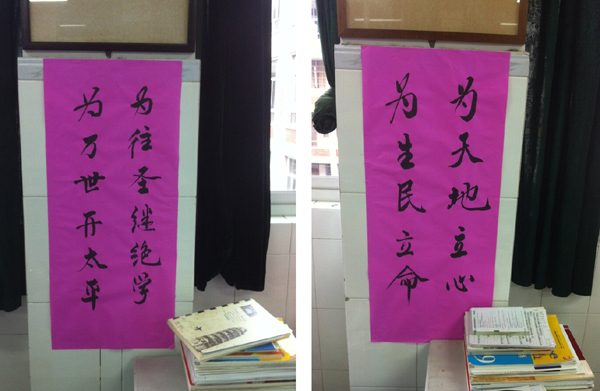 为天地立心
为生民立命
为往圣继绝学
为万世开太平
9